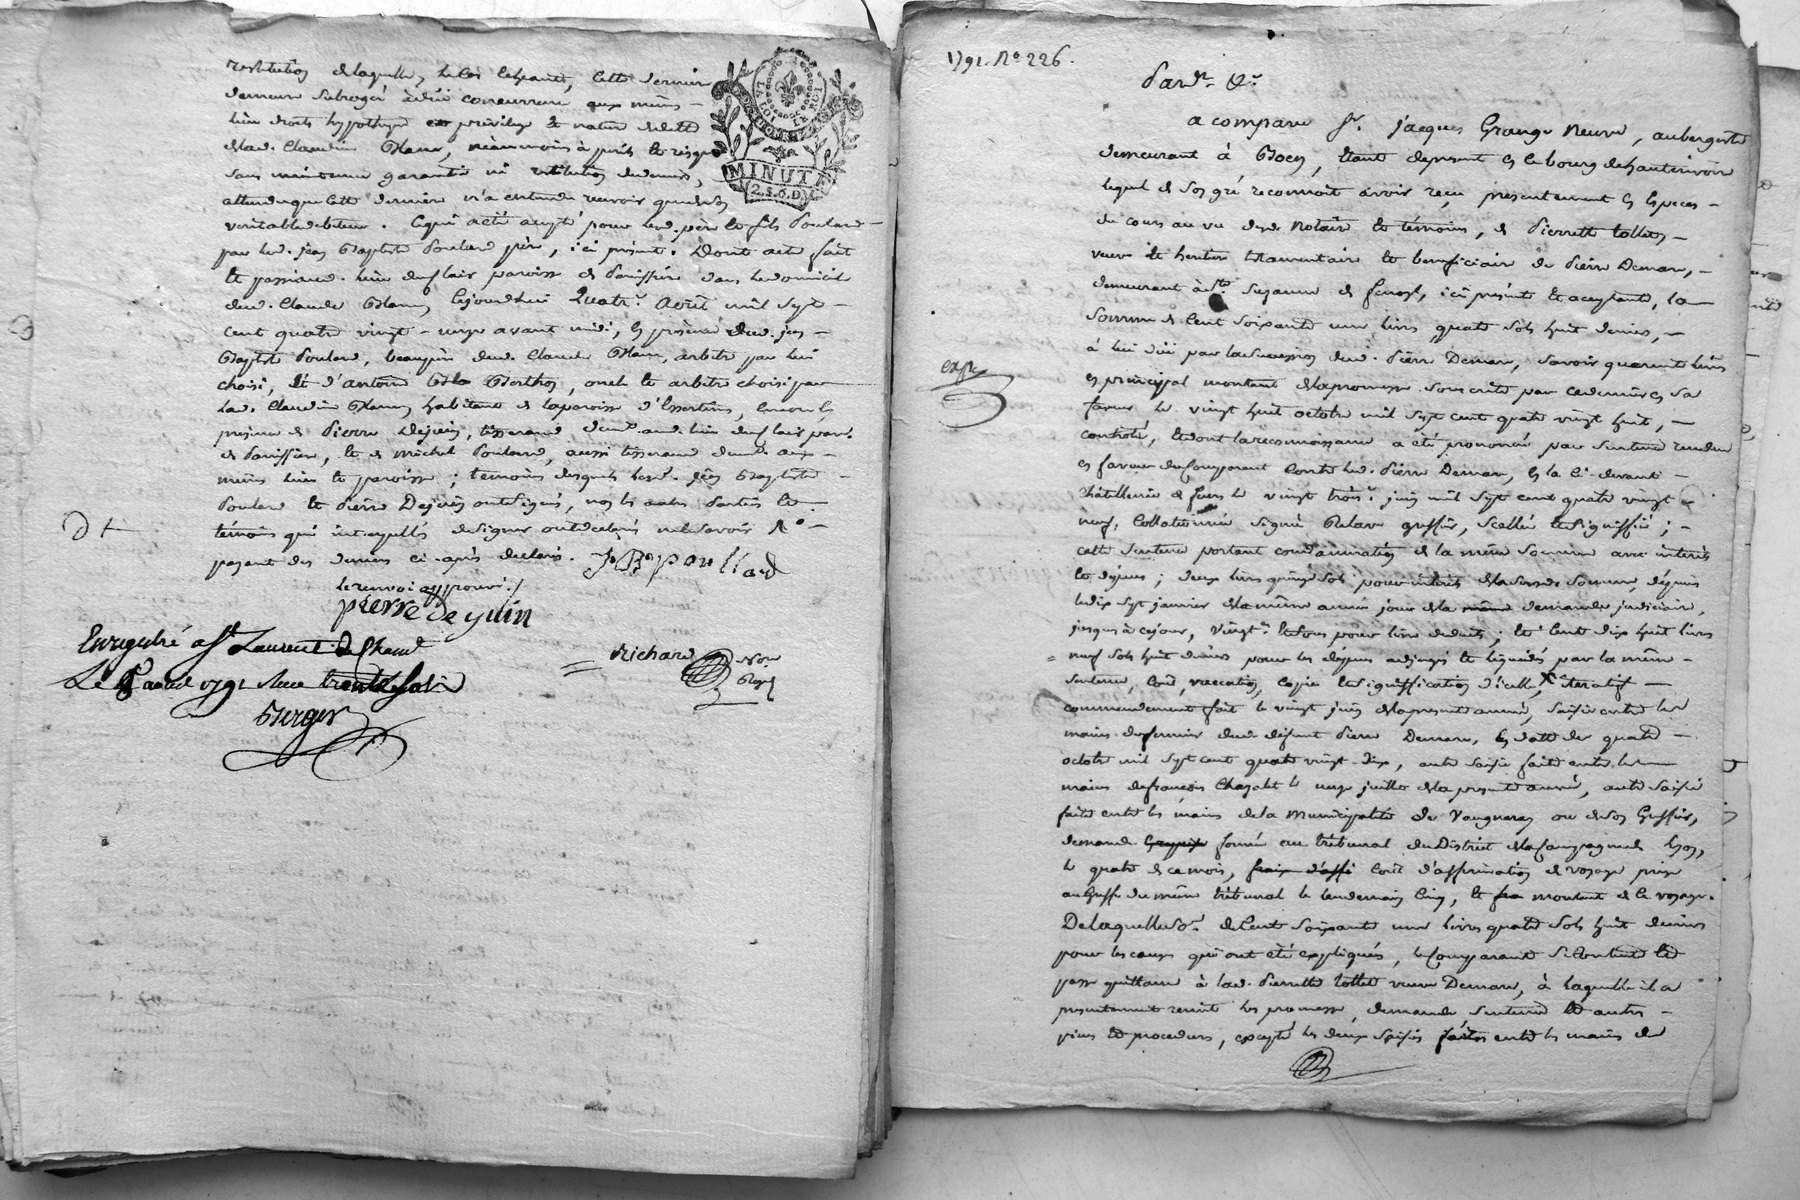 restitution de laquelle, le cas échéant, cette dernière
demeure subrogé à due concurrence aux mêmes
lieu droits hypotheque privilege et nature de dette
de lad. Claudine néanmoins à ses périls et risques
sans garantie ni restitution de deniers,
attendu que cette dernière n'a entendu recevoir que de son
veritable debiteur. Ce qui a été accepté pour led. père et fils Poulard
par led. jean Baptiste Poulard père, ici présent. Dont acte fait
et passé aud. lieu paroisse de Panissière dans le domicile
dud. Claude cejourdhui Quatre Août mil sept
cent quatre vingt-onze avant midi, en presence dud. jean
Baptiste Poulard, beaupère dud. Claude arbitre par lui
choisi, et d'antoine Berthon, oncle et arbitre choisi par
lad. Claudine habitant de la paroisse d'Essertines, encore en
presence de Pierre Dejuin, tisserand dem.t aud. lieu par.
de Panissière, et de Michel Poulard, aussi tisserand dem.t aux
mêmes lieu et paroisse; temoins desquels led. jean Baptiste
Poulard et Pierre Dejuin ont signé, non les autres Parties et
témoins qui interpellés de signer ont déclaré ne le savoir
payant des deniers ci-après déclarés. J B poullard
le renvoi approuvé ./.
pierre deyuin
Enregistré a St Laurent de Chamd
Le 8 aout 1791 Reçu trente sols
Berger
Richard Nore Royal
MINUTE
2.S.6.D
LA LOI ET LE ROI
1791. No 226.
Pardt &c
a comparu Sr. jacques Grange neuve, aubergiste
demeurant à Bocy, étant de présent en le bourg de hauterivoire
lequel de son gré reconnoit avoir reçu presentement en especes
de cours au vu desd. Notaire et témoins, de Pierrette tollet
veuve et heritiere testamentaire et beneficiaire de Pierre Demare,
demeurant à Ste. Suzanne de ici présente et acceptante, la
somme de Cent soixante une livres quatre sols huit deniers,
à lui due par la succession dud. Pierre Demare, savoir quarante livres
en principal montant de la promesse souscrite par ce dernier en sa
faveur le vingt huit octobre mil sept cent quatre vingt huit,
exp.
controlé, et dont la reconnoissance a été prononcé par sentence rendue
en faveur du Comparant contre led. Pierre Demare, en la ci-devant
Châtellenie de feurs le vingt trois juin mil sept cent quatre vingt
neuf, Collationnée signé greffier, scellée et signiffiée;
cette sentence portant condamnation de la même somme avec interêts
et dépens; deux livres quinze sols pour interêts de lad. somme, depuis
le dix sept janvier de la même année jour de la demande judiciaire,
jusqu'à cejour, vingt.e et sous pour livre deduits; et Cent dix huit livres
neuf sols huit deniers pour les dépens adjugés et liquidés par la même
sentence, Coût, vaccation, copie et signiffication d'icelle, Iteratif
commandement fait le vingt juin de la presente année, saisie entre les
mains du fermier dud. défunt Pierre Demare, en datte du quatre
octobre mil sept cent quatre vingt dix, autre saisie faite entre les
mains de françois Chazalet le onze juillet de la presente année, autre saisie
faite entre les mains de la Municipalité de Vaugneray ou de son Greffier,
demande formée au tribunal du District de la Campagne de Lyon,
le quatre de ce mois, coût d'affirmation de voyage prise
au Greffe du même tribunal le lendemain cinq, et montant de ce voyage.
De laquelle so.e de Cent soixante une livres quatre sols huit deniers
pour les causes qui ont été expliqués, le Comparant se contente et
passe quittance à lad. Pierrette tollet veuve Demare, à laquelle il a
presentement remis les promesse, demande, sentence et autres
pieces et procedures, excepté les deux saisies faites entre les mains de